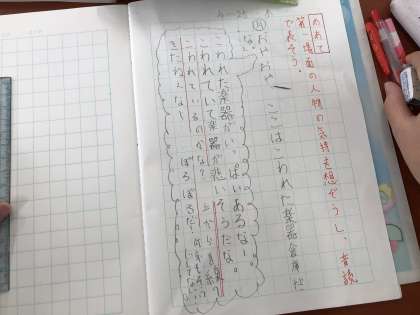 めあて
第一場面の人物の気持ちを想ぞうし、音読
で表そう。
4-23
おやおや
ここはこわれた楽器倉庫
なんだ
こわれた楽器がいっぱいあるなー。
こわれていて楽器が悲しそうだな。
こわれているのかな?
きたねえなー
ぼろぼろだ